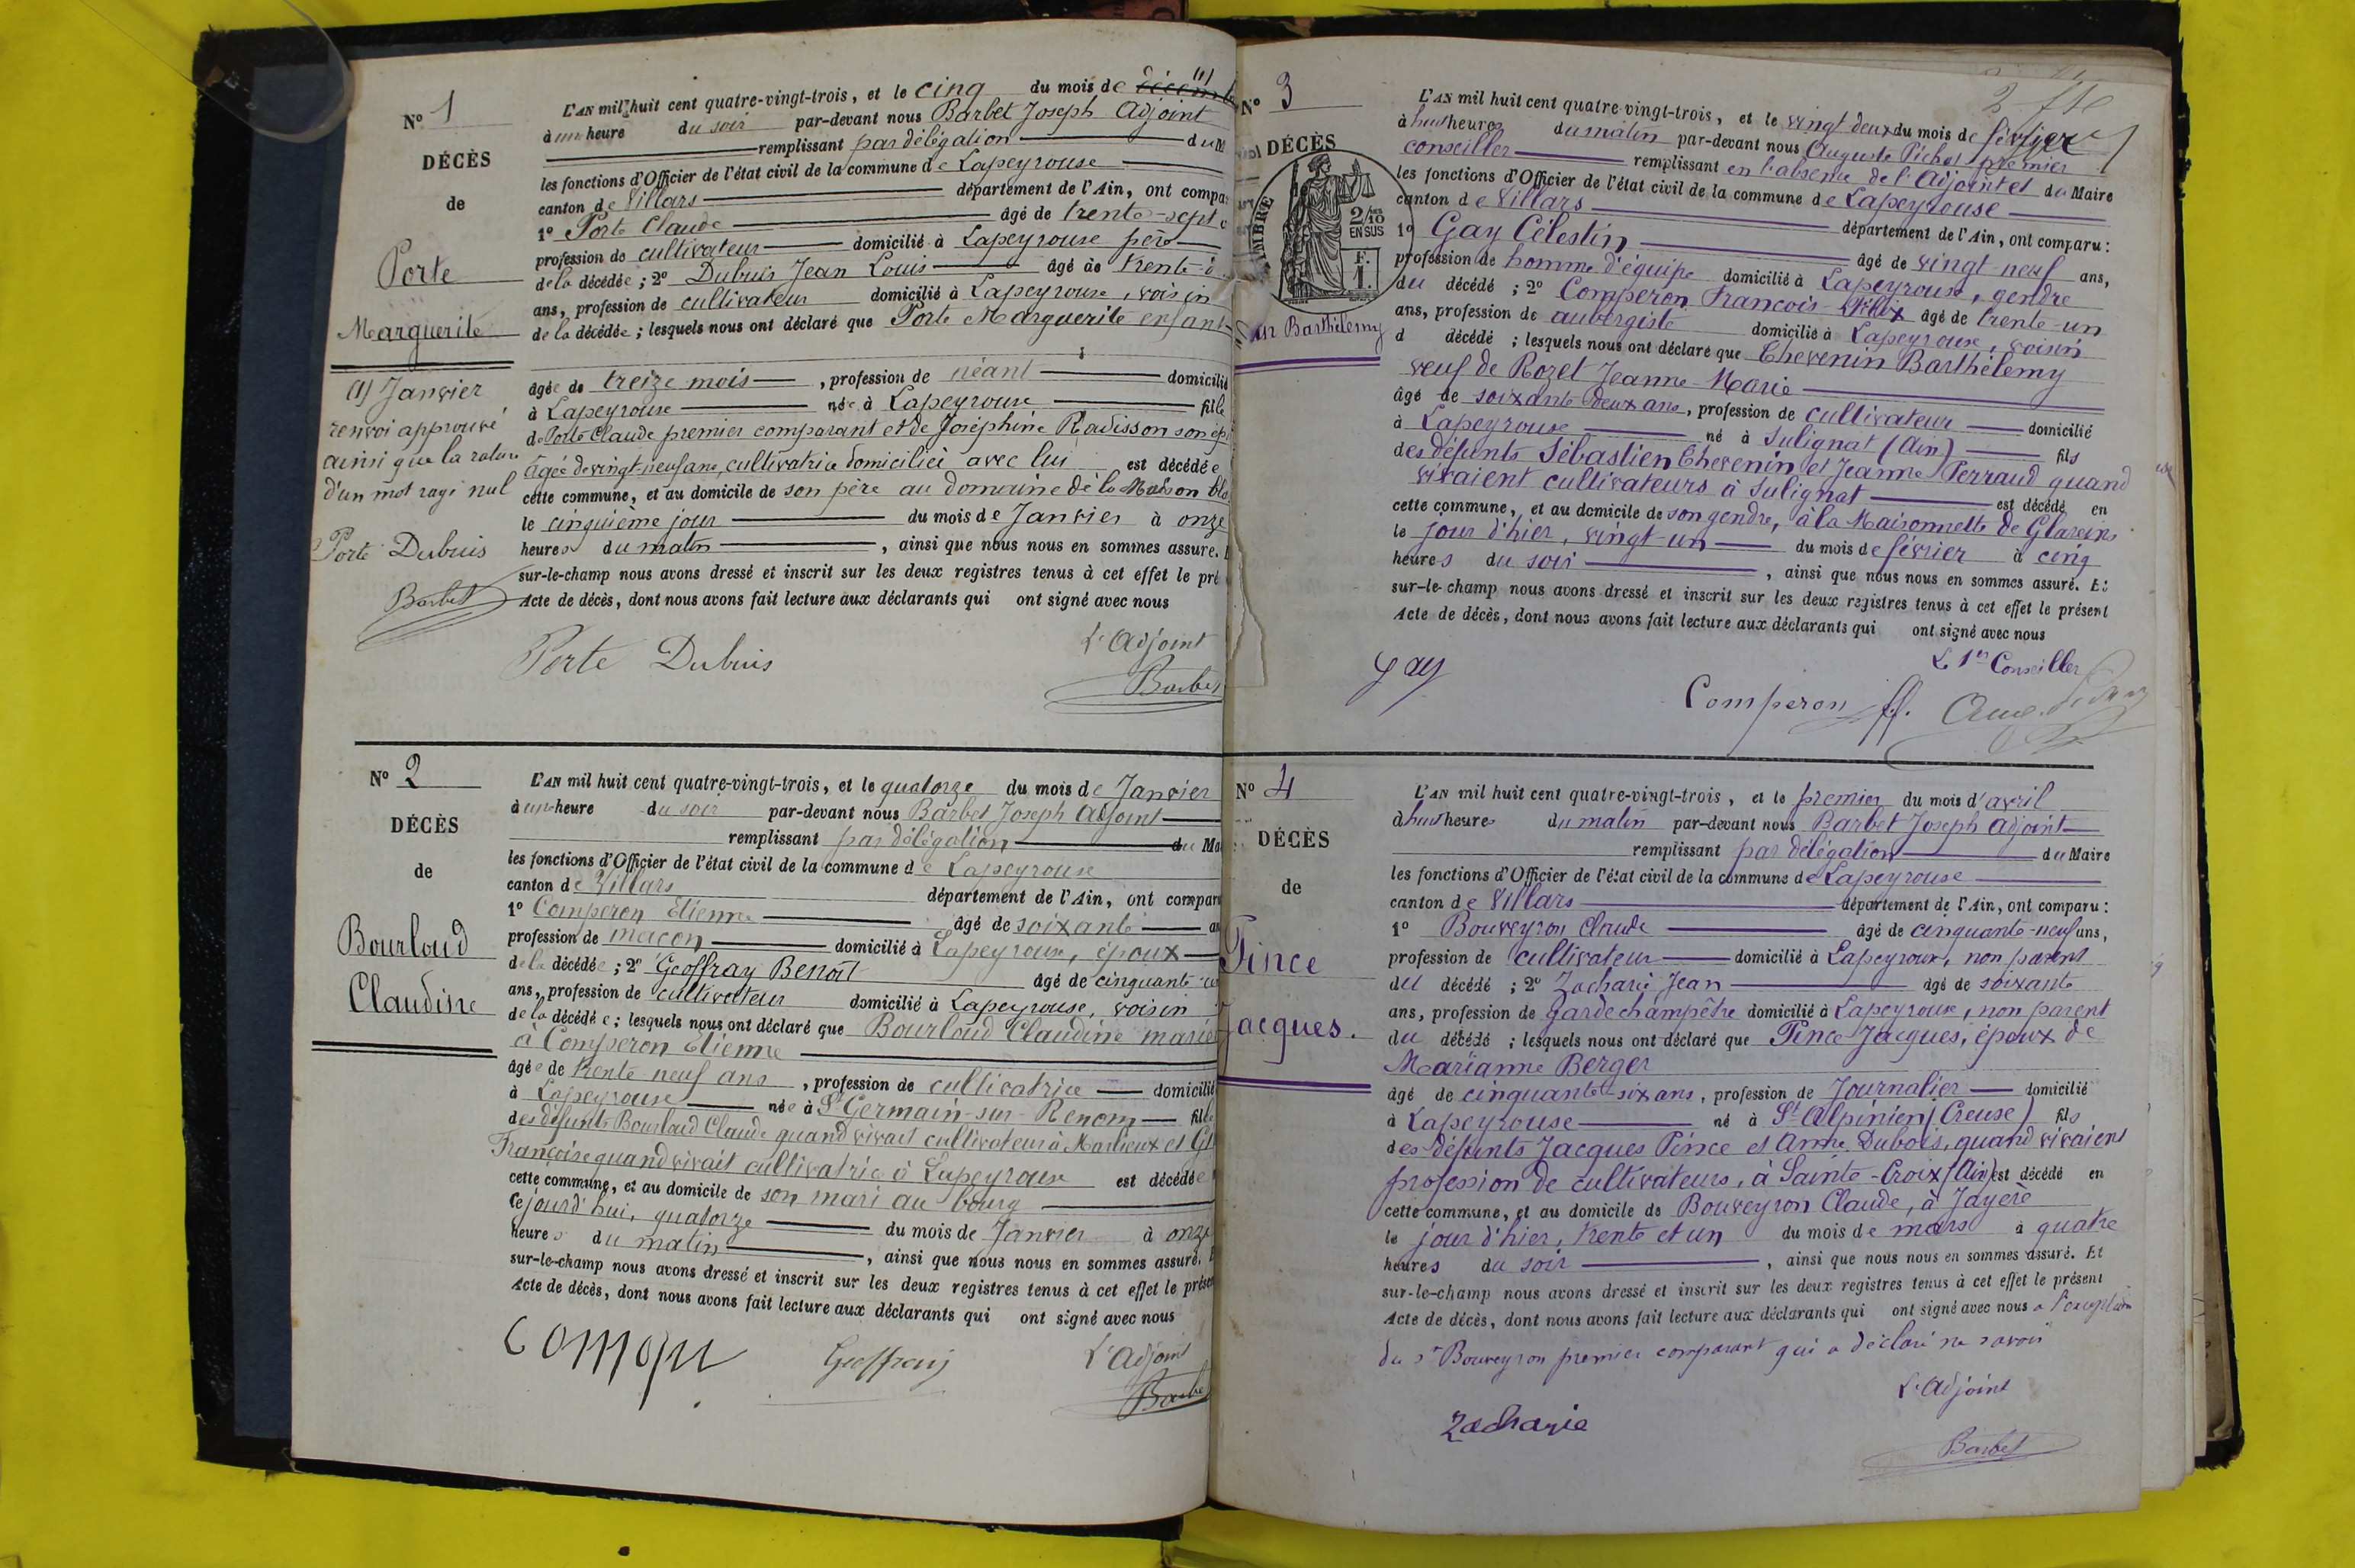 N° 1
DÉCÈS
de
Porte
Marguerite
(1) Janvier
renvoi approuvé
ainsi que la rature
d'un mot rayé nul
Porte Dubuis
Barbet
(1)
L'AN mil huit cent quatre-vingt-trois, et le cinq du mois de
à une heure du soir par-devant nous Barbet Joseph Adjoint
remplissant par délégation du M
les fonctions d'Officier de l'état civil de la commune de Lapeyrouse
canton de Villars département de l'Ain, ont compa
1° Porte Claude âgé de trente-sept
profession de cultivateur domicilié à Lapeyrouse père
de la décédée ; 2° Dubuis Jean Louis âgé de trente-
ans, profession de cultivateur domicilié à Lapeyrouse, voisin
de la décédée ; lesquels nous ont déclaré que Porte Marguerite enfant
âgée de treize mois , profession de néant domicilié
à Lapeyrouse née à Lapeyrouse fille
de Porte Claude premier comparant et de Joséphine Radisson son ép
âgée de vingt-neuf ans, cultivatrice domiciliée avec lui est décédée
cette commune, et au domicile de son père au domaine de la Maison
le cinquième jour du mois de Janvier à onze
heures du matin , ainsi que nous nous en sommes assuré.
sur-le-champ nous avons dressé et inscrit sur les deux registres tenus à cet effet le pré
Acte de décès, dont nous avons fait lecture aux déclarants qui ont signé avec nous
L'Adjoint
Porte Dubuis
Barbet
N° 2
DÉCÈS
de
Bourloud
Claudine
L'AN mil huit cent quatre-vingt-trois, et le quatorze du mois de Janvier
à une heure du soir par-devant nous Barbet Joseph Adjoint
remplissant par délégation du Ma
les fonctions d'Officier de l'état civil de la commune de Lapeyrouse
canton de Villars département de l'Ain, ont compar
1° Comperon Etienne âgé de soixante an
profession de maçon domicilié à Lapeyrouse, époux
de la décédée ; 2° Geoffray Benoît âgé de cinquante
ans, profession de cultivateur domicilié à Lapeyrouse, voisin
de la décédée ; lesquels nous ont déclaré que Bourloud Claudine mariée
à Comperon Etienne
âgée de trente neuf ans , profession de cultivatrice domicilié
à Lapeyrouse née à St Germain-sur-Renom fille
des défunts Bourloud Claude quand vivait cultivateur à Marlieux et
Françoise quand vivait cultivatrice à Lapeyrouse est décédée
cette commune, et au domicile de son mari au bourg
le jourd'hui, quatorze du mois de Janvier à onze
heures du matin , ainsi que nous nous en sommes assuré.
sur-le-champ nous avons dressé et inscrit sur les deux registres tenus à cet effet le présen
Acte de décès, dont nous avons fait lecture aux déclarants qui ont signé avec nous
Geoffray
L'Adjoint
Barbet
N° 3
DÉCÈS
TIMBRE
2/10
EN SUS
F.
1.
Barthélemy
L'AN mil huit cent quatre-vingt-trois, et le vingt deux du mois de février
à huit heures du matin par-devant nous Auguste Pichat premier
conseiller remplissant en l'absence de l'Adjoint et du Maire
les fonctions d'Officier de l'état civil de la commune de Lapeyrouse
canton de Villars département de l'Ain, ont comparu :
1° Gay Célestin âgé de vingt-neuf ans,
profession de homme d'équipe domicilié à Lapeyrouse, gendre
du décédé ; 2° Comperon François-Félix âgé de trente-un
ans, profession de aubergiste domicilié à Lapeyrouse, voisin
d décédé ; lesquels nous ont déclaré que Chevenin Barthélemy
veuf de Rozet Jeanne-Marie
âgé de soixante-deux ans, profession de cultivateur domicilié
à Lapeyrouse né à Sulignat (Ain) fils
des défunts Sébastien Chevenin et Jeanne Perraud quand
vivaient cultivateurs à Sulignat est décédé en
cette commune, et au domicile de son gendre, à la Maisonnette de Glareins
le jour d'hier, vingt-un du mois de février à cinq
heures du soir , ainsi que nous nous en sommes assuré. Et
sur-le-champ nous avons dressé et inscrit sur les deux registres tenus à cet effet le présent
Acte de décès, dont nous avons fait lecture aux déclarants qui ont signé avec nous
Le 1er Conseiller
Gay
Comperon ff.
N° 4
DÉCÈS
de
Pince
Jacques.
L'AN mil huit cent quatre-vingt-trois, et le premier du mois d'avril
à huit heures du matin par-devant nous Barbet Joseph adjoint
remplissant par délégation du Maire
les fonctions d'Officier de l'état civil de la commune de Lapeyrouse
canton de Villars département de l'Ain, ont comparu :
1° Bouveyron Claude âgé de cinquante-neuf ans,
profession de cultivateur domicilié à Lapeyrouse, non parent
du décédé ; 2° Zacharie Jean âgé de soixante
ans, profession de garde champêtre domicilié à Lapeyrouse, non parent
du décédé ; lesquels nous ont déclaré que Pince Jacques, époux de
Marianne Berger
âgé de cinquante-six ans, profession de Journalier domicilié
à Lapeyrouse né à St Alpinien (Creuse) fils
des défunts Jacques Pince et Anne Dubois, quand vivaient
profession de cultivateurs, à Sainte-Croix (Ain) est décédé en
cette commune, et au domicile de Bouveyron Claude, à Jayère
le jour d'hier, trente et un du mois de mars à quatre
heures du soir , ainsi que nous nous en sommes assuré. Et
sur-le-champ nous avons dressé et inscrit sur les deux registres tenus à cet effet le présent
Acte de décès, dont nous avons fait lecture aux déclarants qui ont signé avec nous à l'exception
du sr Bouveyron premier comparant qui a déclaré ne savoir
L'Adjoint
Zacharie
Barbet